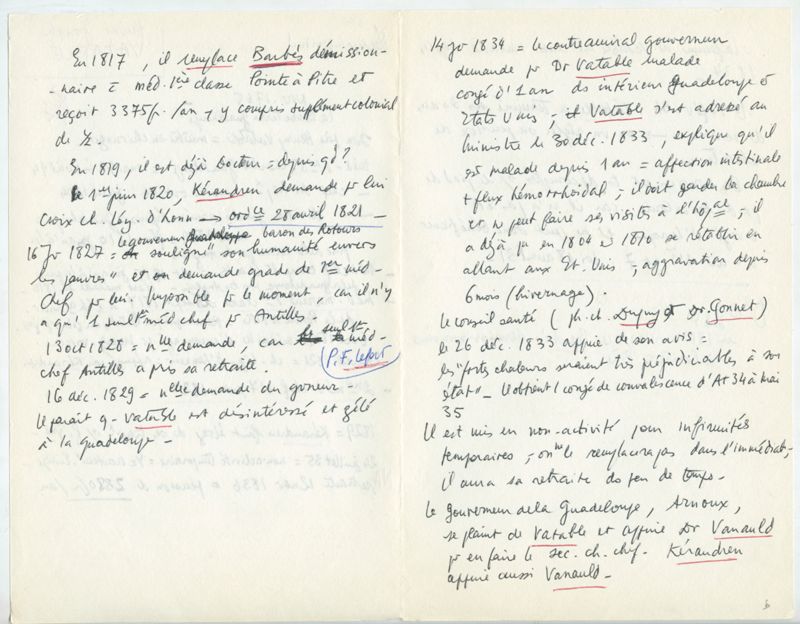 En 1817, il remplace Barbès démission-
-naire à méd. 1ère classe Pointe à Pitre et
reçoit 3375f. /an - y compris supplément colonial
de ½.
En 1819, il est déjà docteur = depuis qd ?
le 1er juin 1820, Kérandren demande pr lui
croix ch. Lég. d'honn → ordce 28 avril 1821 -
le gouverneur Guadeloupe baron des Rotours
16 Jr 1827 = souligne "son humanité envers
les pauvres" et on demande grade de 1er méd-
chef pr lui. Impossible pr le moment, car il n'y
a qu'1 seul 1er méd chef pr Antilles.
13 oct 1828 = nlle demande, car seul 1er méd-
chef Antilles a pris sa retraite. (P.F. Lefort)
16 déc. 1829 = nelle demande du gverneur -
Il paraît q- Vatable est désintéressé et gêlé
à la Guadeloupe
14 Jr 1834 = le contreamiral gouverneur
demande pr Dr Vatable malade
congé d'1 an ds intérieur Guadeloupe ou
Etats Unis, - Vatable s'est adressé au
ministre le 30 déc. 1833, explique qu'il
est malade depuis 1 an = affection intestinale
+ flux hémorrhoïdal, - il doit garder la chambre
et n peut faire ses visites à l'hôpal ; il
a déjà pu en 1804 et 1810 se rétablir en
allant aux Et. Unis, aggravation depuis
6 mois (hivernage).
Le conseil santé (ph. ch. Dupuy et Dr. Gonnet)
le 26 déc. 1833 appuie de son avis =
les "fortes chaleurs seraient très préjudiciables à son
état" - Il obtient 1 congé de convalescence d'At 34 à Mai
35
Il est mis en non-activité pour infirmités
temporaires, - on ne le remplacera pas dans l'immédiat,
il aura sa retraite ds peu de temps -
Le gouverneur de la Guadeloupe, Arnoux,
se plaint de Vatable et appuie Dr Vanauld
pr en faire le sec. ch. chef - Kérandren
appuie aussi Vanauld -